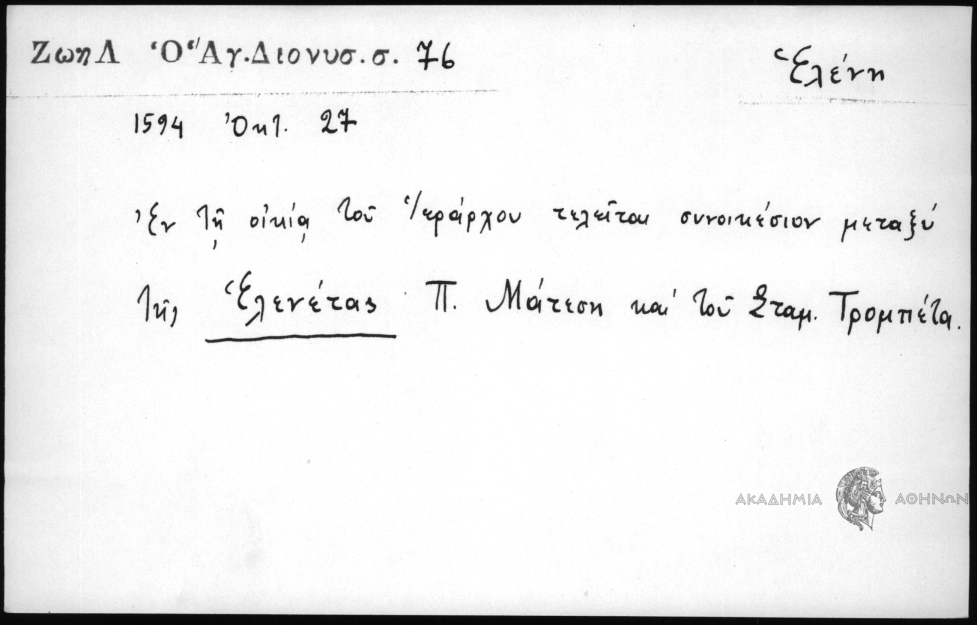 ΖωηΛ Ὁ Ἅγ. Διονυσ. σ. 76
Ἑλένη
1594 Ὀκτ. 27
Ἐν τῇ οἰκίᾳ τοῦ Ἱεράρχου τελεῖται συνοικέσιον μεταξύ
τῆς Ἑλενέτας Π. Μάτεση καί τοῦ Σταμ. Τρομπέτα.
ΑΚΑΔΗΜΙΑ ΑΘΗΝΩΝ